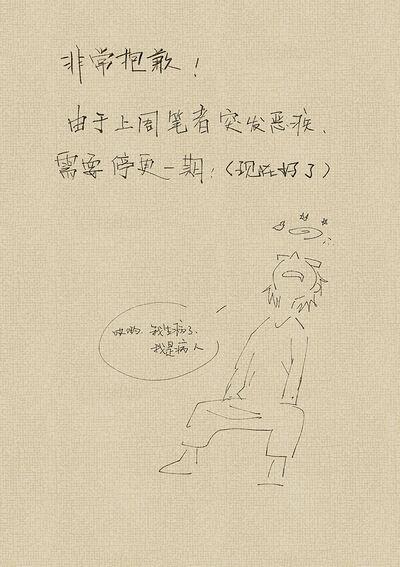 非常抱歉!
由于上周笔者突发恶疾、
需要停更一期;(现在好了)
哎哟,我生病了、
我是病人